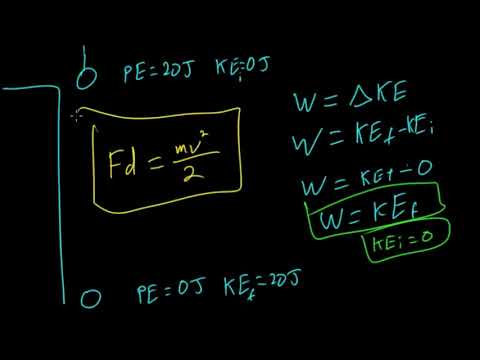 PE=20J KEᵢ=0J
W=ΔKE
Fd = mv²/2
W=KE_f-KEᵢ
W=KE_f-0
W=KE_f
KEᵢ=0
PE=0J KE_f=20J